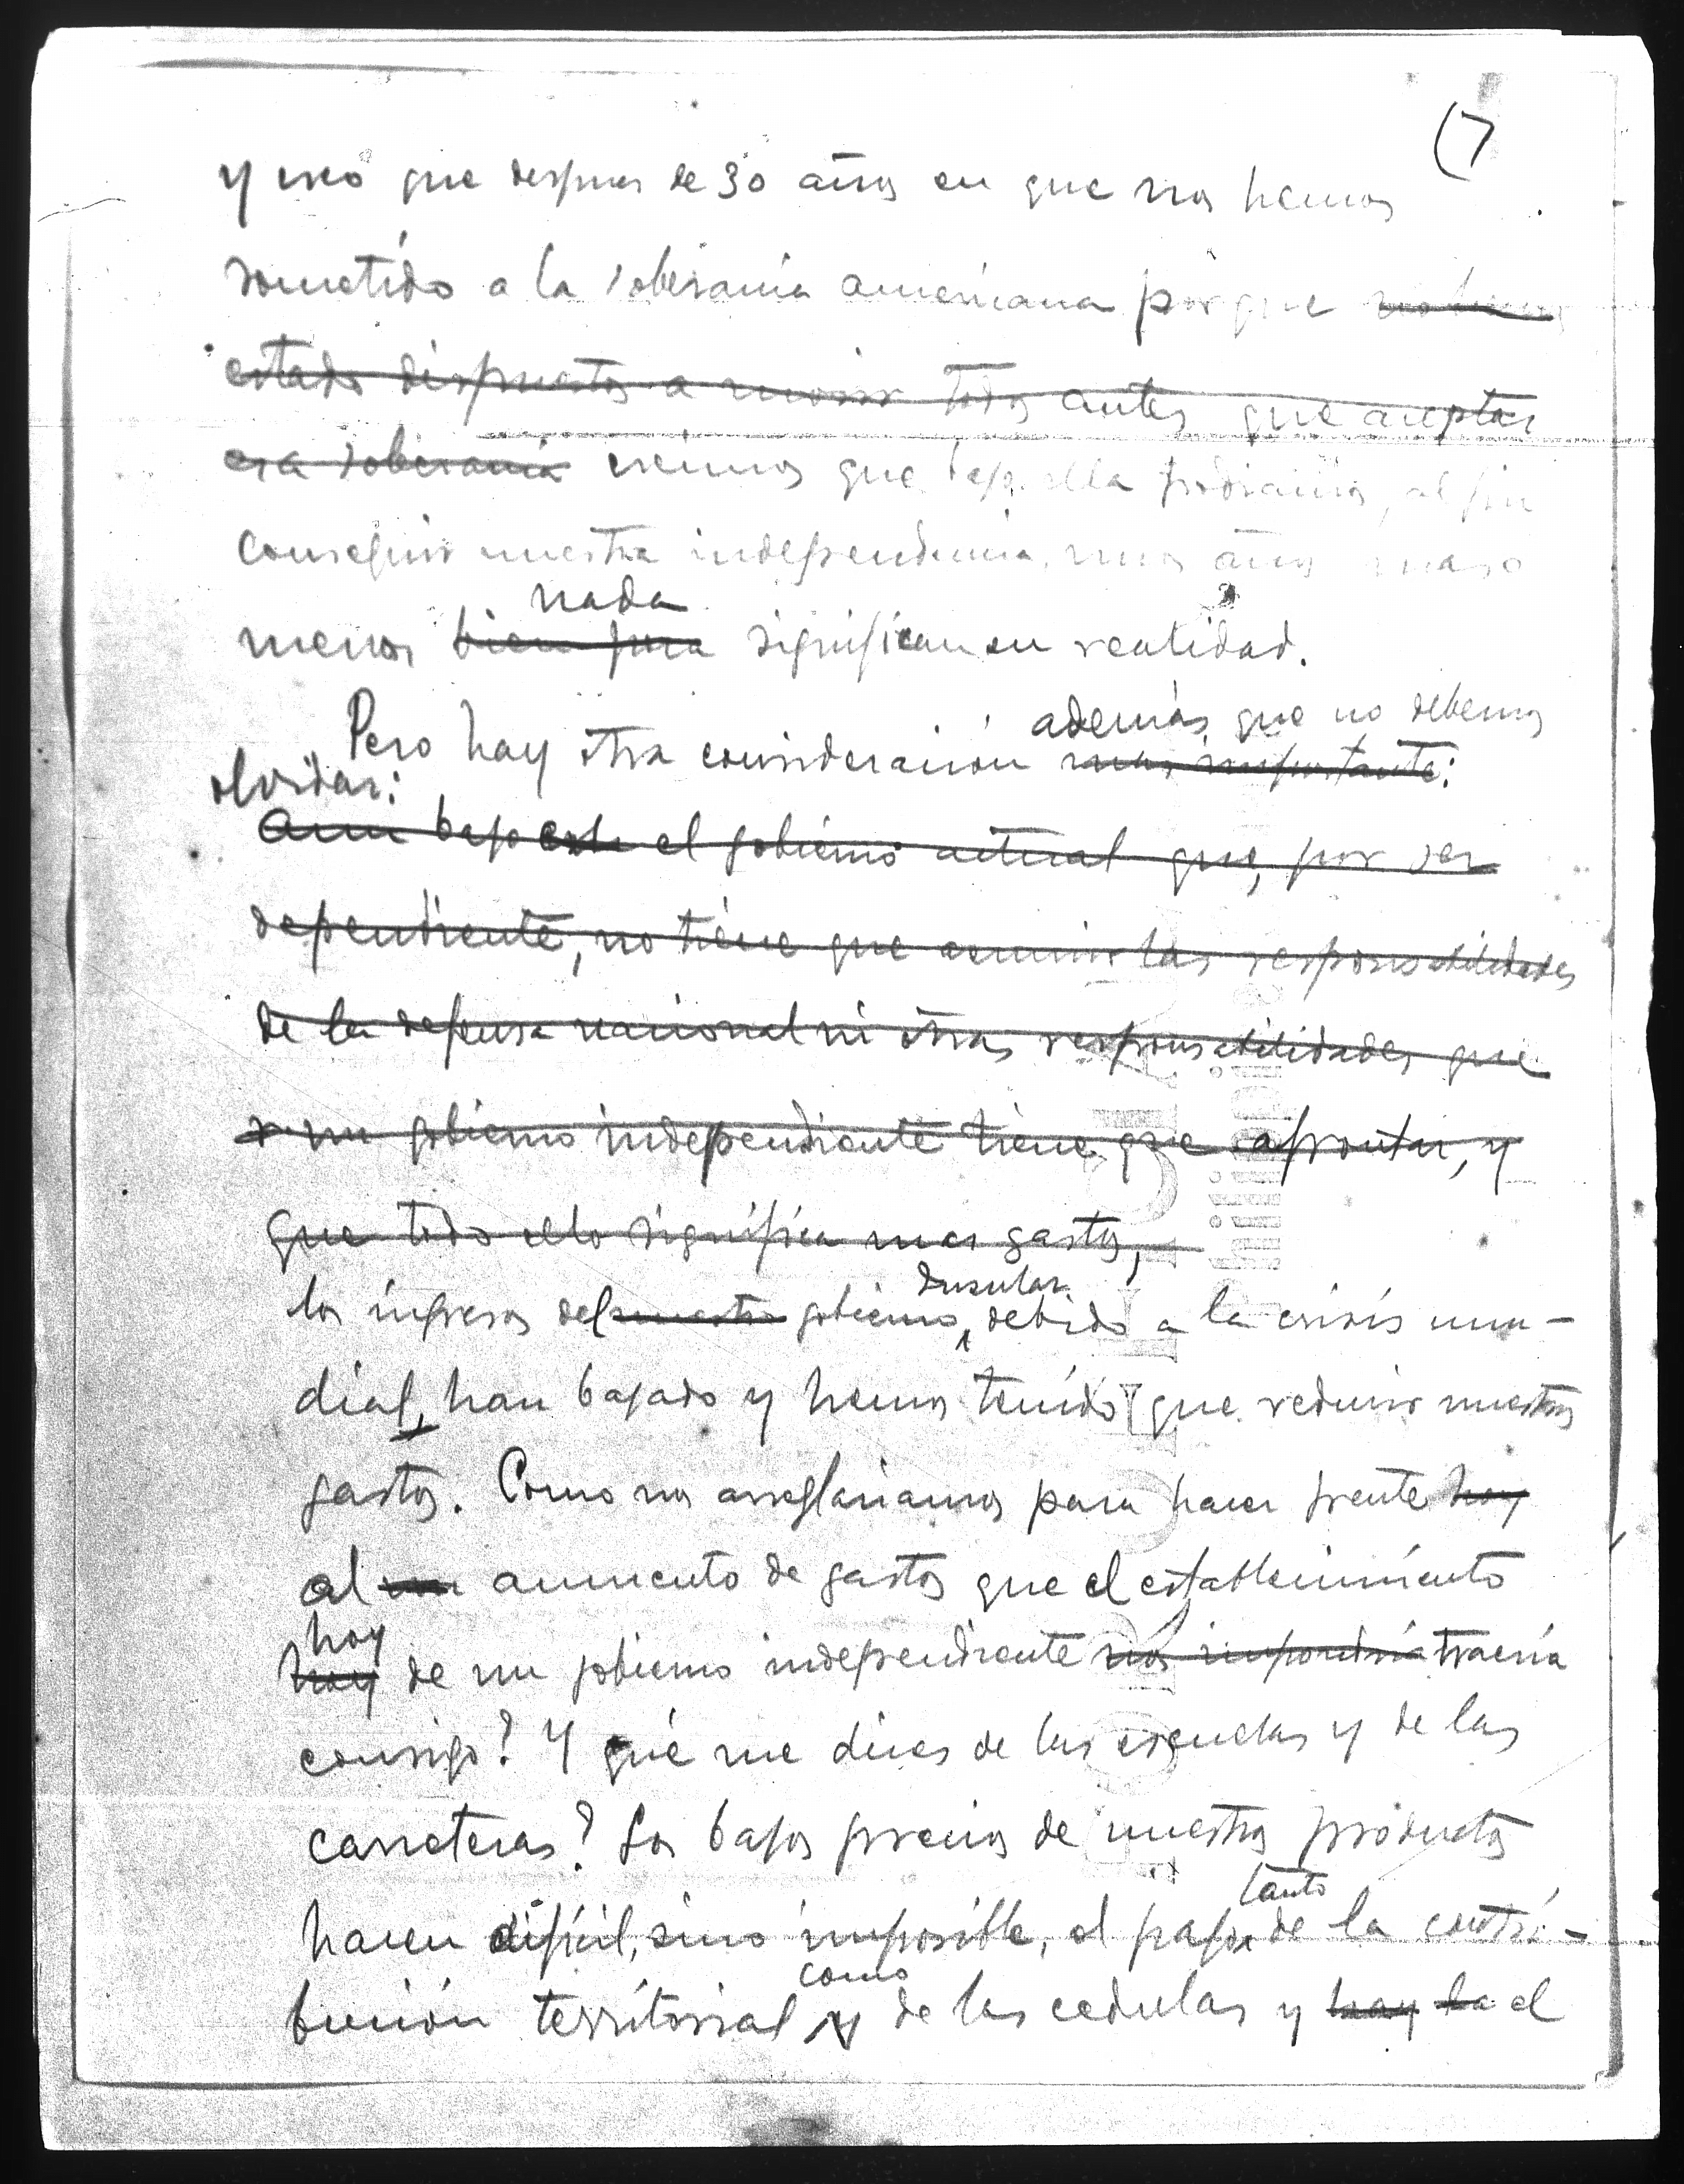 (7
y creo que despues de 30 años en que nos hemos
sometido a la soberania americana porque no hemos
estado dispuestos a morir todos antes que aceptar
esa soberania creimos que bajo ella podriamos, al fin
conseguir nuestra independencia, unos años mas o
nada
menos bien poca significan en realidad.
además, que no debemos
Pero hay otra consideración mas importante:
olvidar:
Aun bajo este el gobierno actual que, por ser
dependiente, no tiene que asumir las responsabilidades
de la defensa nacional ni otras responsabilidades que
un gobierno independiente tiene que afrontar, y
que todo ello significa mas gastos,
Insular
los ingresos del nuestro gobierno, debido a la crisis mun-
dial, han bajado y hemos tenido que reducir nuestros
gastos. Como nos arreglariamos para hacer frente hoy
al un aumento de gastos que el establecimiento
hoy
hoy de un gobierno independiente nos impondria traeria
consigo? Y qué me dices de las escuelas y de las
carreteras? Los bajos precios de nuestros productos
tanto
hacen dificil, sino imposible, el pago de la contri-
como
bución territorial y de las cedulas y hay la el